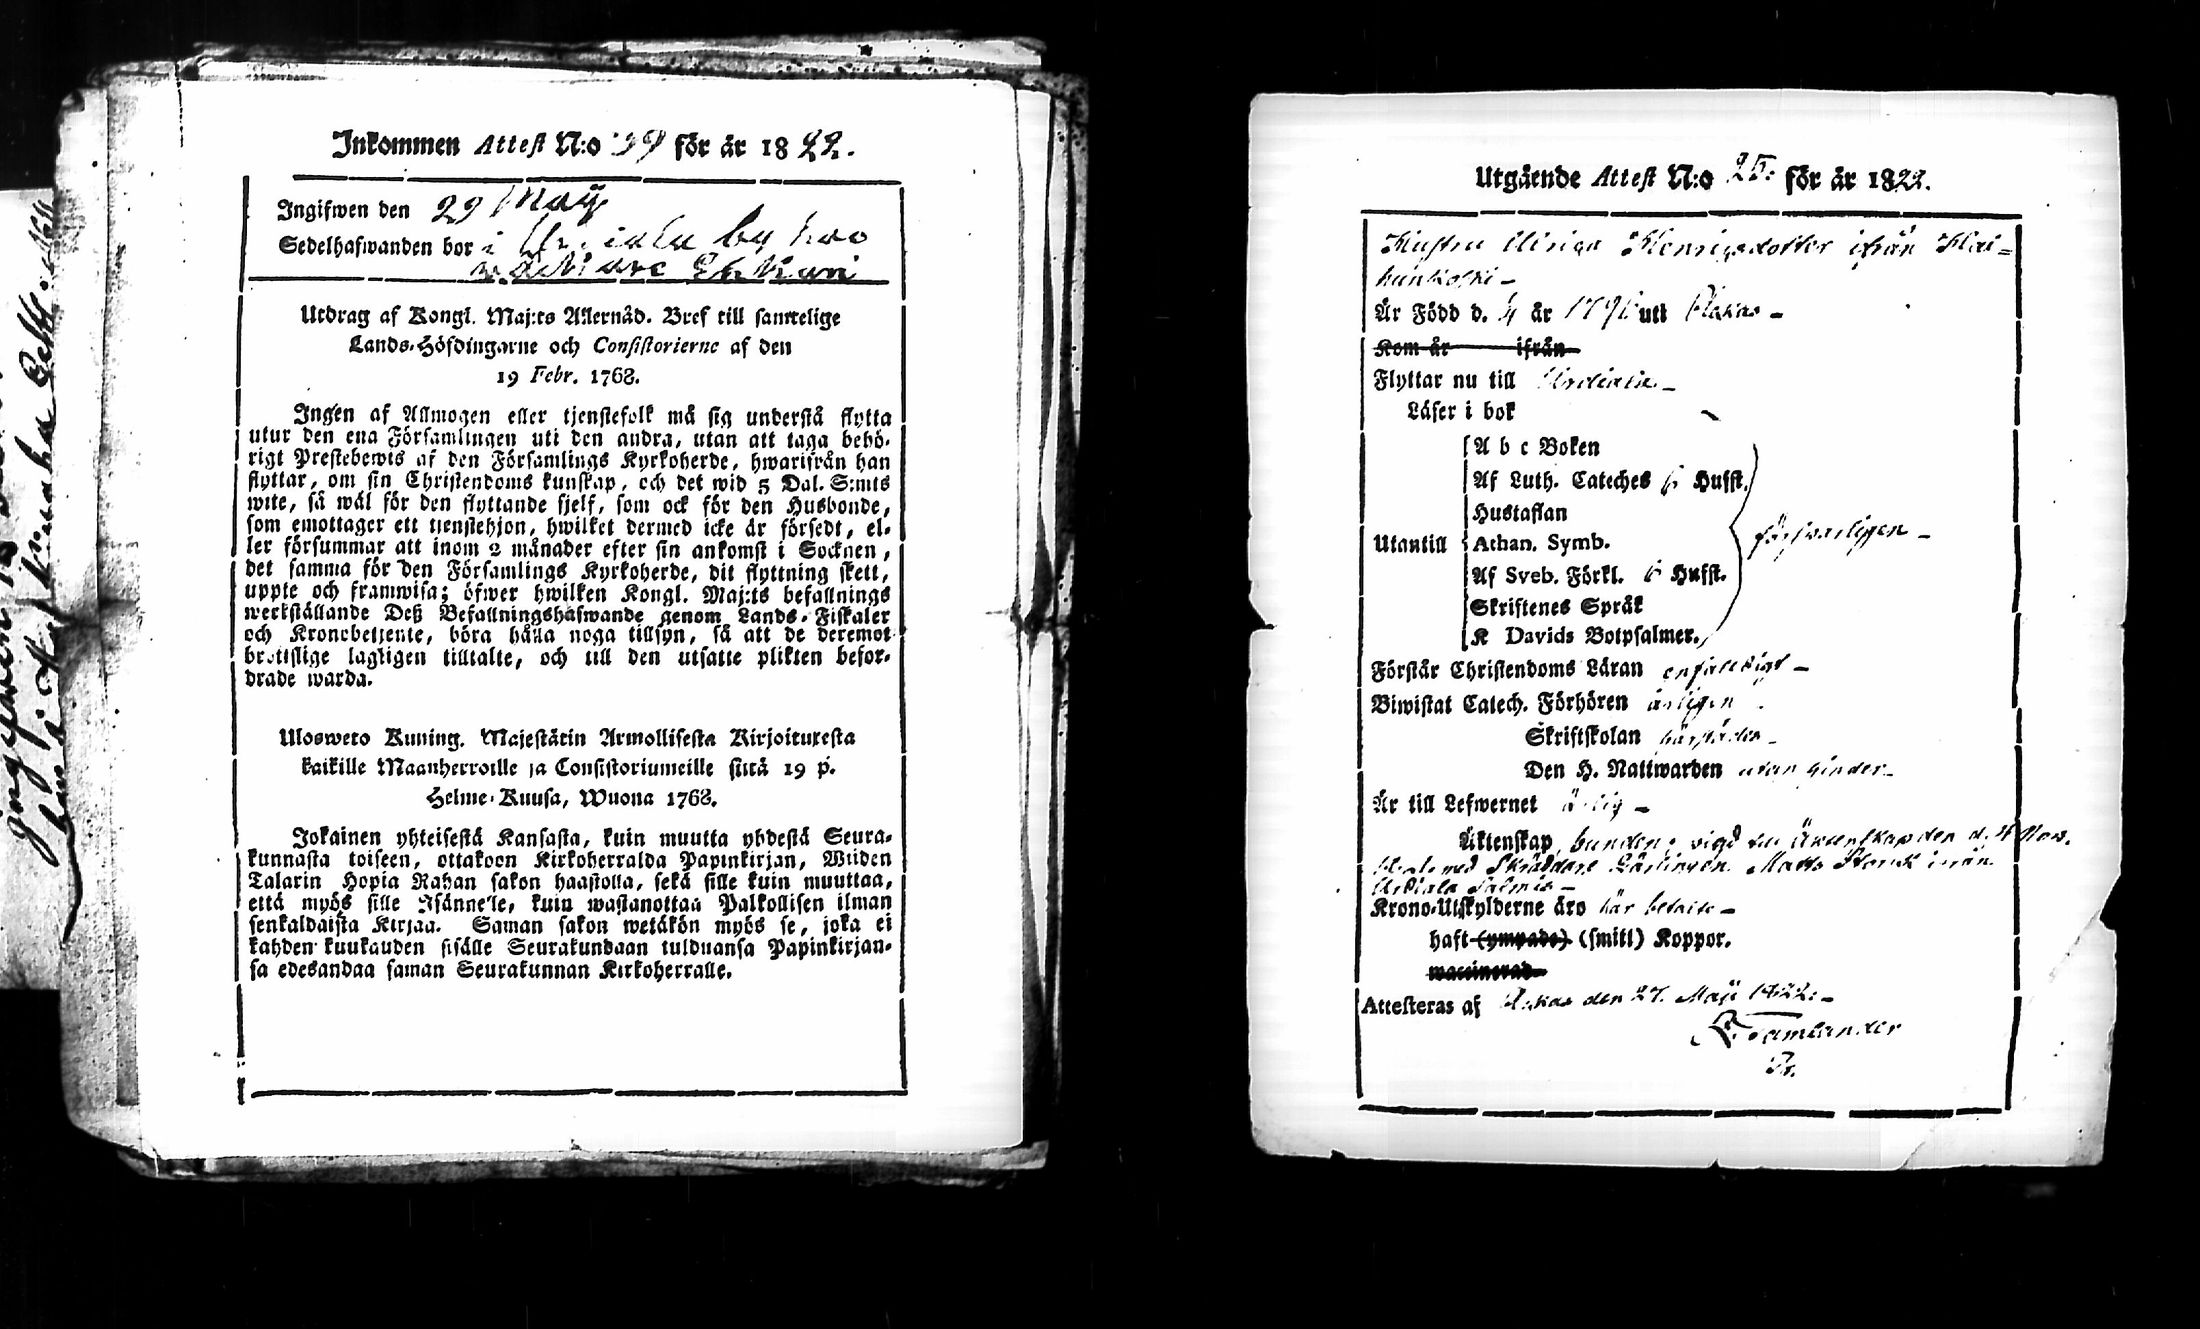 Inkommen Attest N:o 39 för år 1822.
Ingifwen den 29 Maÿ
Sedelhafwanden bor i Urdiala by hoo
Utdrag af Kongl. Maj:ts Allernåd. Bref till samtelige
Lands-Höfdingarne och Consistorierne af den
19 Febr. 1768.
Ingen af Allmogen eller tjenstefolk må sig understå flytta
utur den ena Församlingen uti den andra, utan att taga behö-
rigt Prestebewis af den Församlings Kyrkoherde, hwarifrån han
flyttar, om sin Christendoms kunskap, och det wid 5 Dal. S:mts
wite, så wäl för den flyttande sjelf, som ock för den Husbonde,
som emottager ett tjenstehjon, hwilket dermed icke är försedt, el-
ler försummar att inom 2 månader efter sin ankomst i Socknen,
det samma för den Församlings Kyrkoherde, dit flyttning skett,
uppte och framwisa; öfwer hwilken Kongl. Maj:ts befallnings
werkställande Deß Befallningshafwande genom Lands-Fiskaler
och Kronobetjente, böra hålla noga tillsyn, så att de deremot
brottslige lagligen tilltalte, och till den utsatte plikten befor-
drade warda.
Ulosweto Kuning. Majestätin Armollisesta Kirjoituxesta
kaikille Maanherroille ja Consistoriumeille siitä 19 p.
Helme-Kuusa, Wuona 1768.
Jokainen yhteisestä Kansasta, kuin muutta yhdestä Seura-
kunnasta toiseen, ottakoon Kirkoherralda Papinkirjan, Wiiden
Talarin Hopia Rahan sakon haastolla, sekä sille kuin muuttaa,
että myös sille Isännelle, kuin wastanottaa Palkollisen ilman
senkaldaista Kirjaa. Saman sakon wetäkön myös se, joka ei
kahden kuukauden sisälle Seurakundaan tulduansa Papinkirjan-
sa edesandaa saman Seurakunnan Kirkoherralle.
Utgående Attest N:o 25. för år 1822.
Hustru Ulriga Henrigsdotter ifrån Hai-
hunkoski -
Är Född d. 4 år 179 uti Akkas -
Kom år ifrån
Flyttar nu till Urdiala -
Läser i bok
A b c Boken
Af Luth. Cateches 6 Hufst.
Hustaflan
Utantill Athan. Symb. försvarligen -
Af Sveb. Förkl. 6 Hufst.
Skriftenes Språk
K Davids Botpsalmer.
Förstår Christendoms Läran enfaldigt -
Biwistat Catech. Förhören årligen
Skriftskolan härstädes -
Den H. Nattwarden utan hinder -
Är till Lefwernet ärlig -
Äktenskap bunden, vigd till Äktenskap den d. 4 Nov.
med Skräddare Lärlingen Matts Stark ifrån
Urdiala Salmis -
Krono-Utskylderne äro här betalte -
haft (ympade) (smitt) Koppor.
waccinerad
Attesteras af Akkas den 27. Maji 1822. -
Tamlander